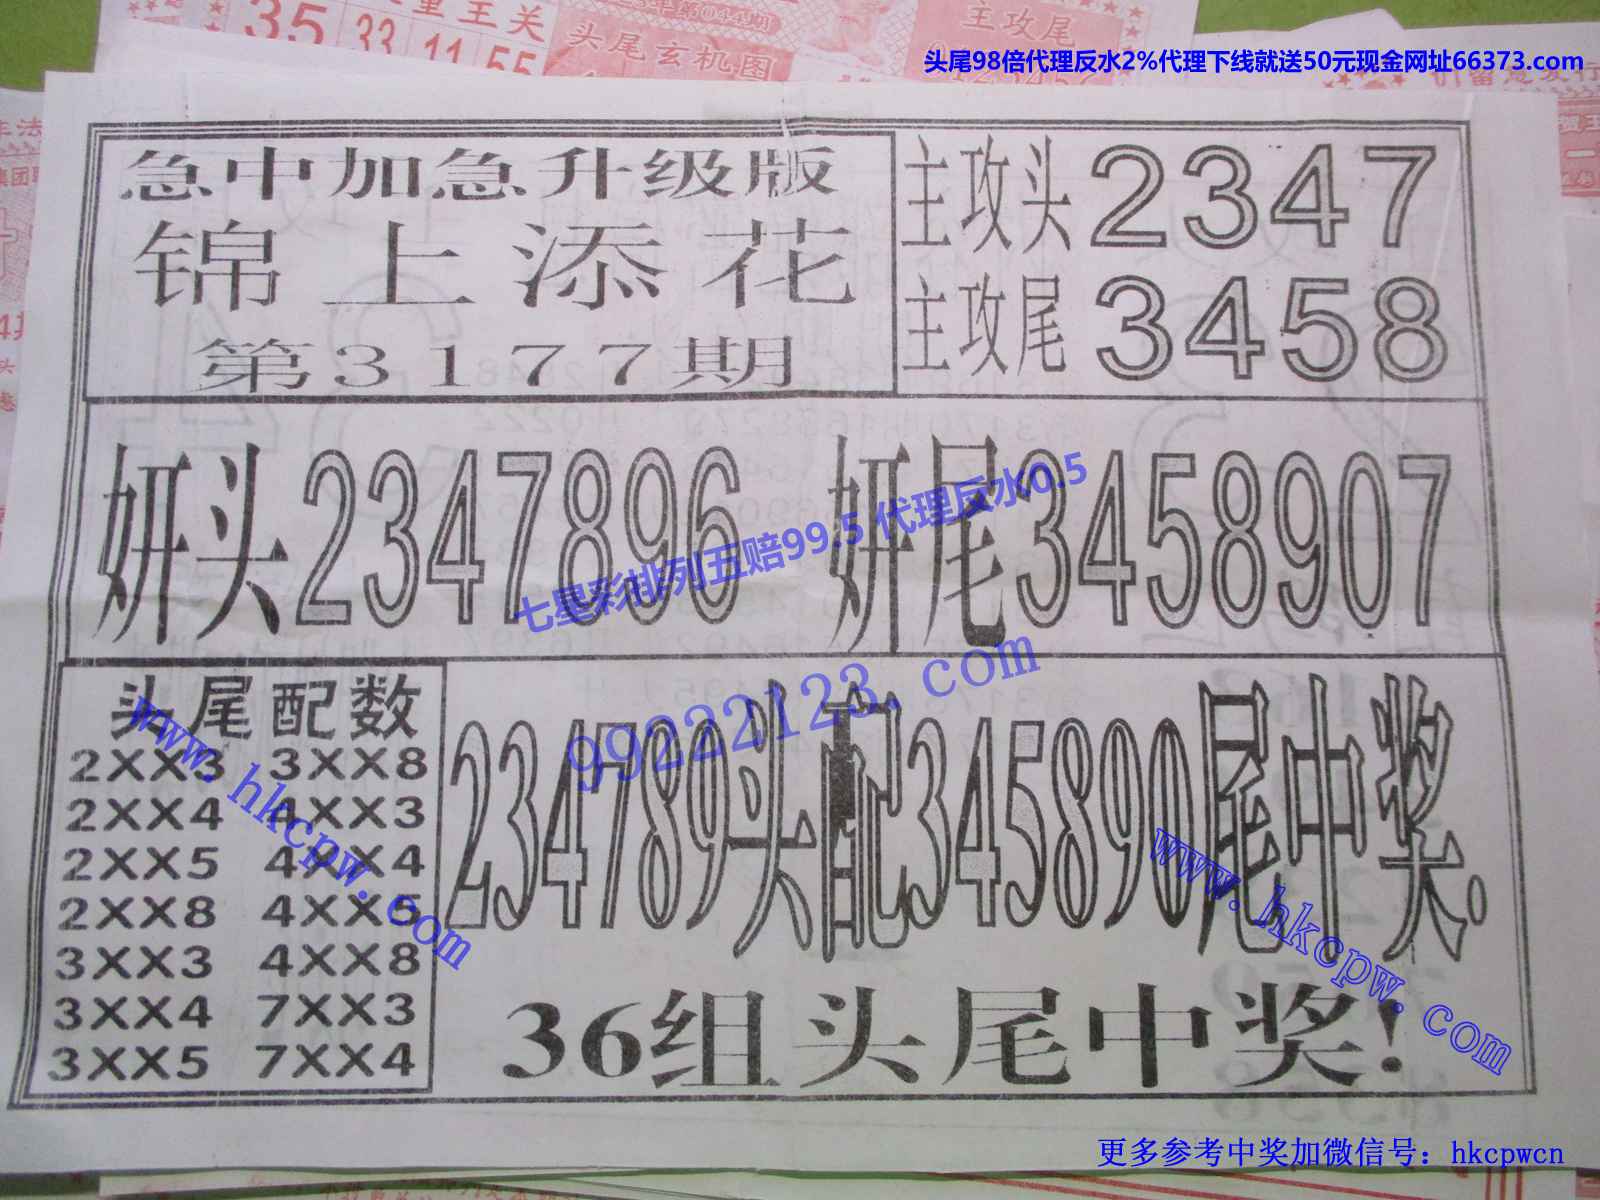 重王关
35 33 11 55
第044期
头尾玄机图
主攻尾
头尾98倍代理反水2%代理下线就送50元现金网址66373.com
急中加急升级版
锦上添花
第3177期
主攻头2347
主攻尾3458
妍头2347896 妍尾3458907
七星彩排列五赔99.5 代理反水0.5
99222123.com
头尾配数
2XX3 3XX8
2XX4 4XX3
2XX5 4XX4
2XX8 4XX5
3XX3 4XX8
3XX4 7XX3
3XX5 7XX4
www.hkcpw.com
234789头配345890尾中奖.
www.hkcpw.com
36组头尾中奖!
更多参考中奖加微信号：hkcpwcn